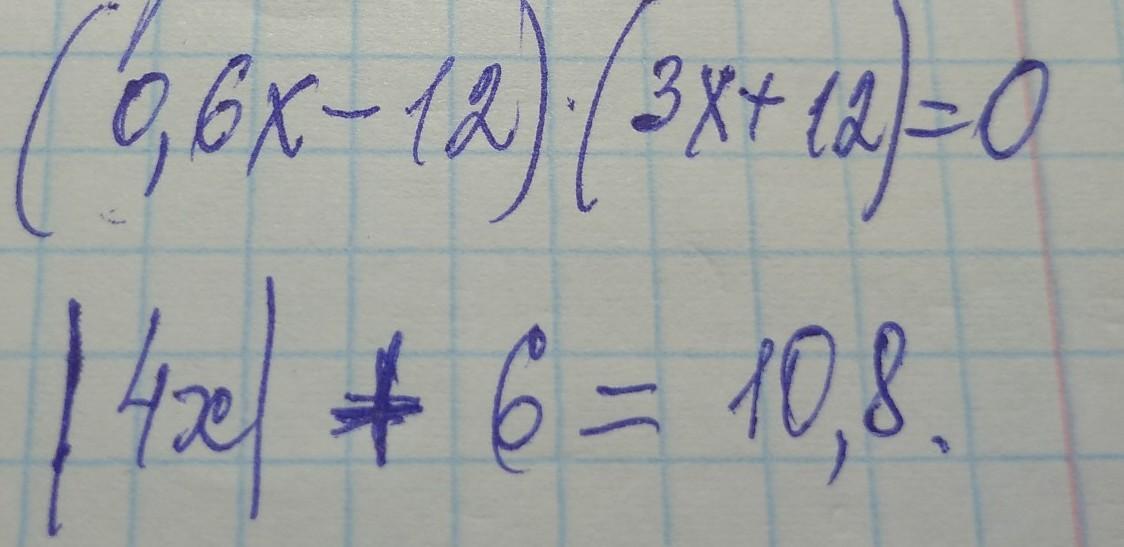 (0,6x-12)·(3x+12)=0
|4x|+6=10,8.